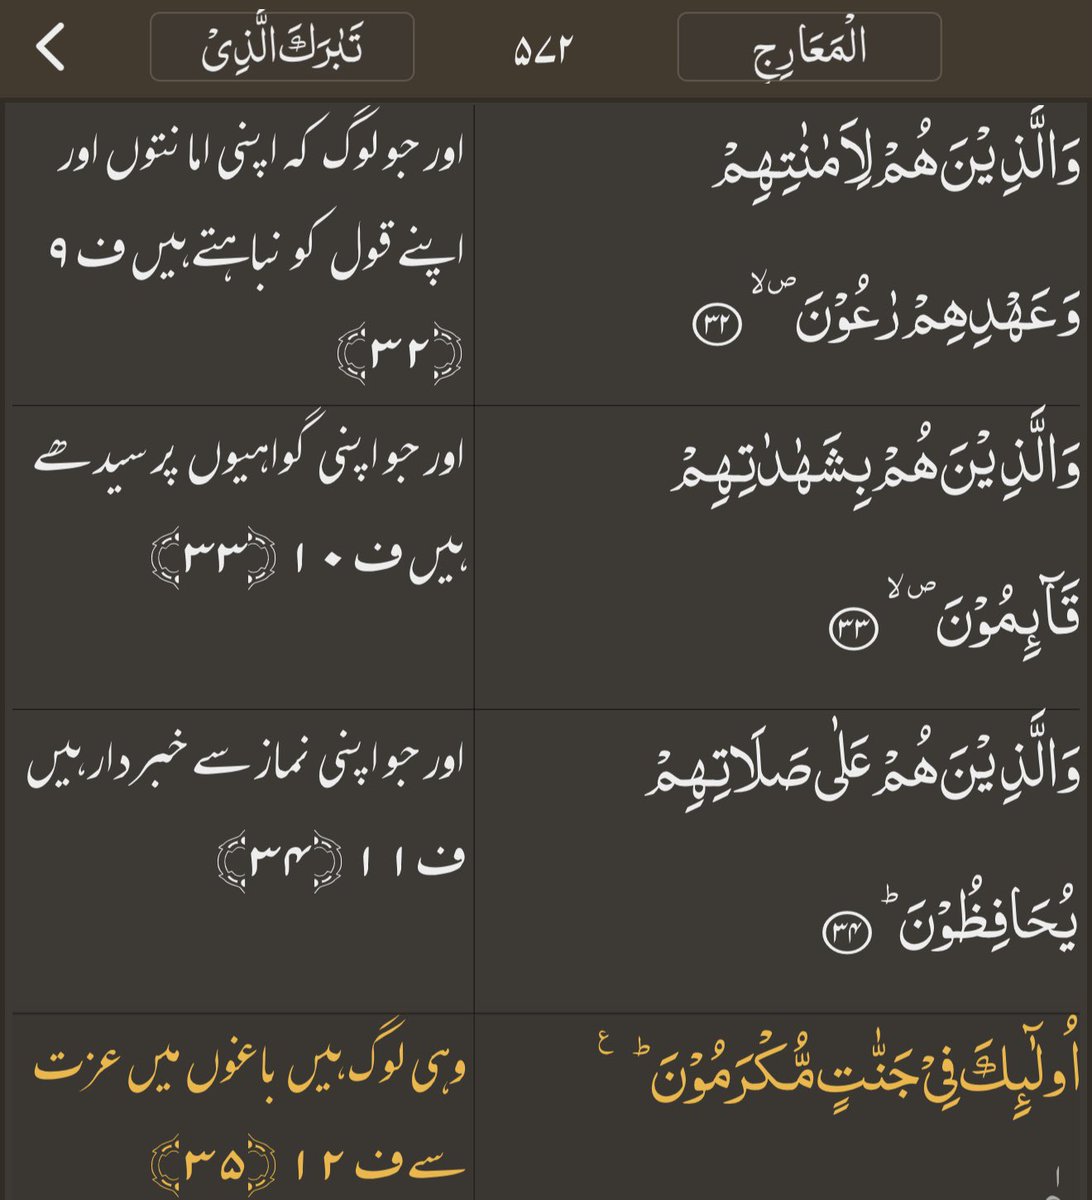 الْمَعَارِجِ
۵۷۲
تَبٰرَكَ الَّذِیْ
وَالَّذِیْنَ هُمْ لِاَمٰنٰتِهِمْ
وَعَهْدِهِمْ رٰعُوْنَ ۪ۙ ۳۲
اور جو لوگ کہ اپنی امانتوں اور
اپنے قول کو نباہتے ہیں ف ۹
﴿۳۲﴾
وَالَّذِیْنَ هُمْ بِشَهٰدٰتِهِمْ
قَآىِٕمُوْنَ ۪ۙ ۳۳
اور جو اپنی گواہیوں پر سیدھے
ہیں ف ۱۰ ﴿۳۳﴾
وَالَّذِیْنَ هُمْ عَلٰی صَلَاتِهِمْ
یُحَافِظُوْنَ ؕ ۳۴
اور جو اپنی نماز سے خبردار ہیں
ف ۱۱ ﴿۳۴﴾
اُولٰٓىِٕكَ فِیْ جَنّٰتٍ مُّكْرَمُوْنَ ؕ ع
وہی لوگ ہیں باغوں میں عزت
سے ف ۱۲ ﴿۳۵﴾